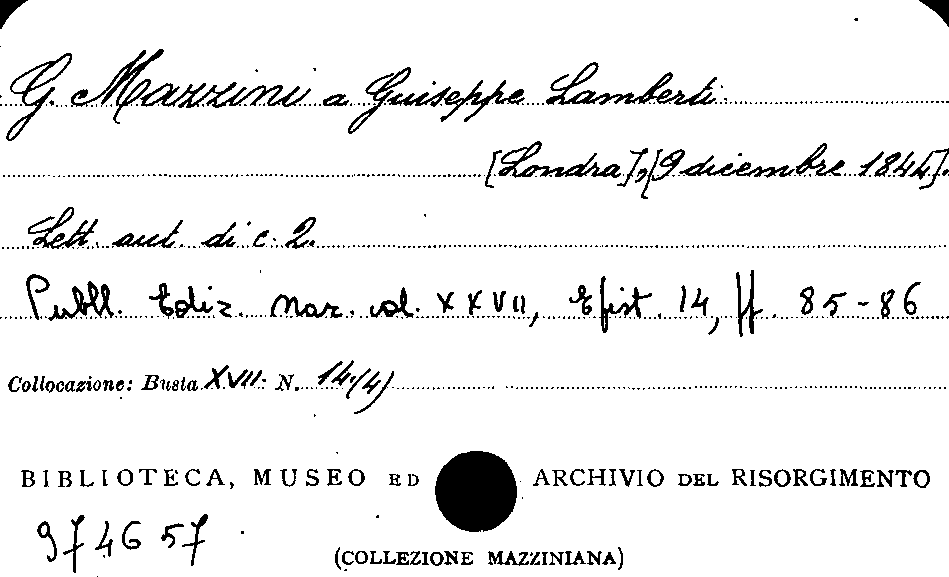 G. Mazzini a Guiseppe Lamberti.
[Londra], [9 dicembre 1844].
Lett. aut. di c. 2.
Pubbl. Ediz. Naz. vol. XXVII, Epist. 14, pp. 85-86
Collocazione: Busta XVII. N. 14/4)
BIBLIOTECA, MUSEO ED ARCHIVIO DEL RISORGIMENTO
974657
(COLLEZIONE MAZZINIANA)